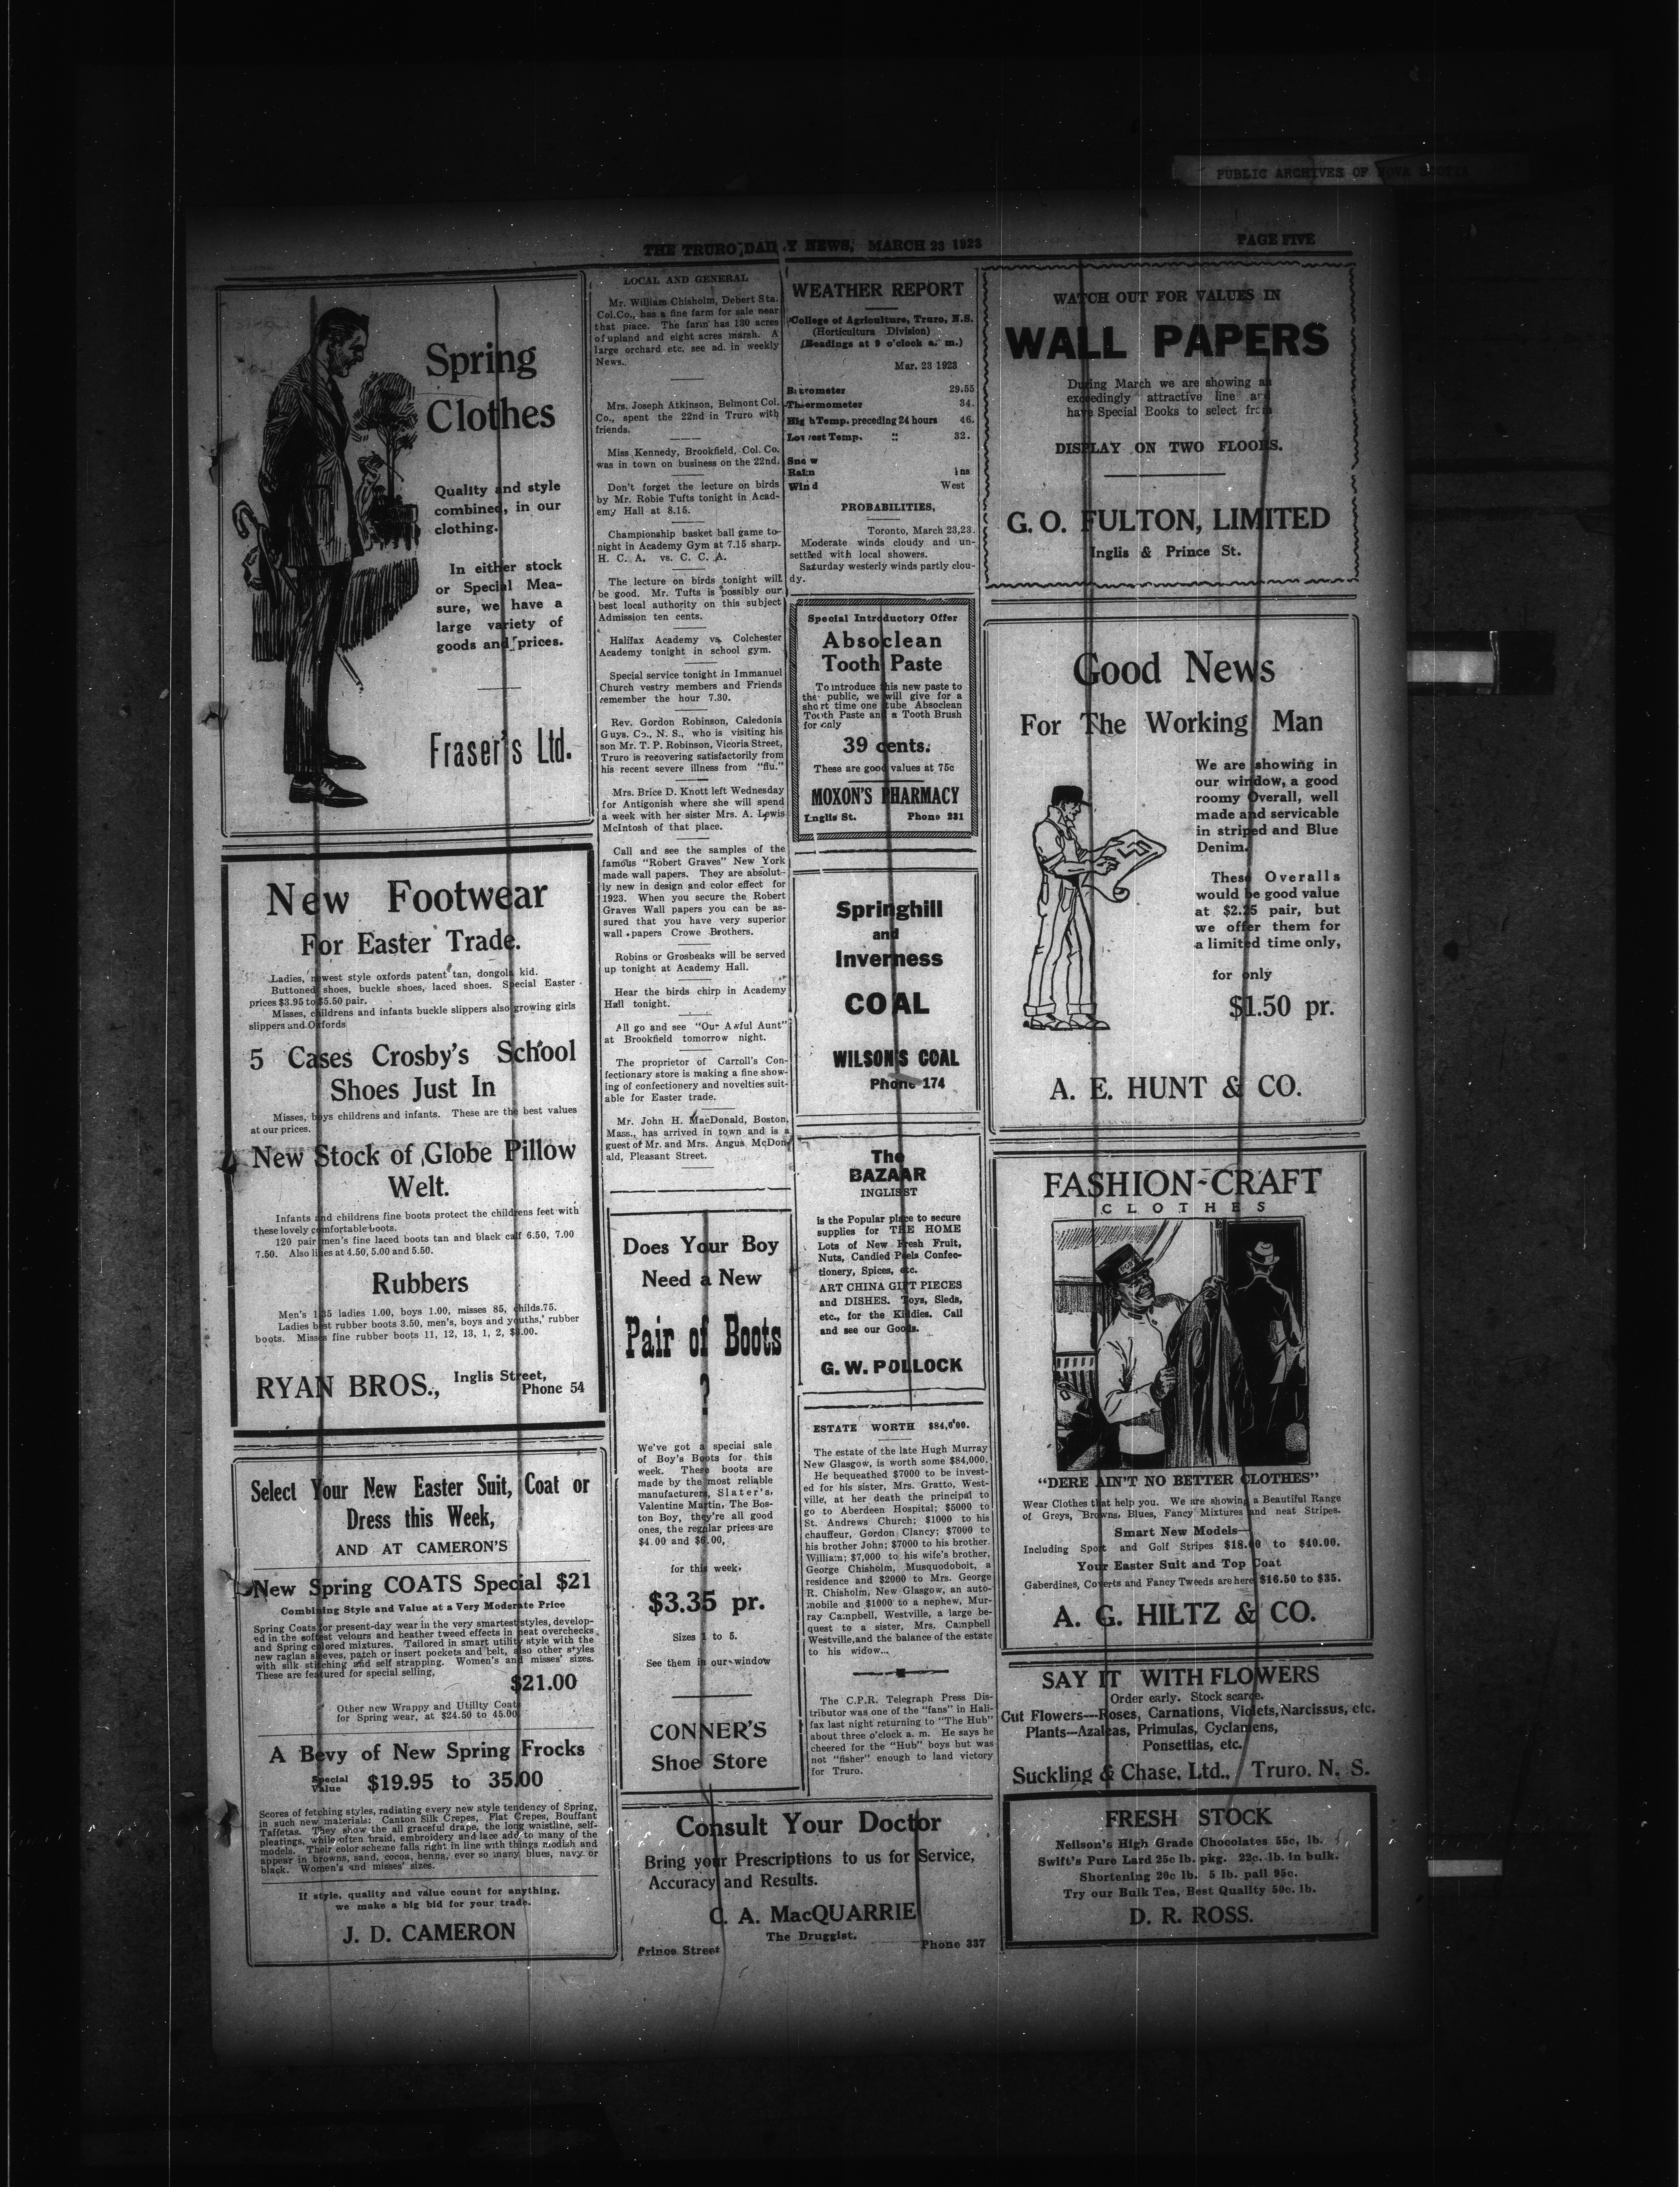 PUBLIC ARCHIVES OF NOVA SCOTIA
THE TRURO DAILY NEWS, MARCH 23 1923
PAGE FIVE
Spring
Clothes
Quality and style
combined, in our
clothing.
In either stock
or Special Mea-
sure, we have a
large variety of
goods and prices.
Fraser's Ltd.
New Footwear
For Easter Trade.
Ladies, newest style oxfords patent tan, dongola kid.
Buttoned shoes, buckle shoes, laced shoes. Special Easter
prices $3.95 to $5.50 pair.
Misses, childrens and infants buckle slippers also growing girls
slippers and Oxfords
5 Cases Crosby's School
Shoes Just In
Misses, boys childrens and infants. These are the best values
at our prices.
New Stock of Globe Pillow
Welt.
Infants and childrens fine boots protect the childrens feet with
these lovely comfortable boots.
120 pair men's fine laced boots tan and black calf 6.50, 7.00
7.50. Also lines at 4.50, 5.00 and 5.50.
Rubbers
Men's 1.35 ladies 1.00, boys 1.00, misses 85, childs.75.
Ladies best rubber boots 3.50, men's, boys and youths,' rubber
boots. Misses fine rubber boots 11, 12, 13, 1, 2, $3.00.
RYAN BROS., Inglis Street,
Phone 54
Select Your New Easter Suit, Coat or
Dress this Week,
AND AT CAMERON'S
New Spring COATS Special $21
Combining Style and Value at a Very Moderate Price
Spring Coats for present-day wear in the very smartest styles, develop-
ed in the softest velours and heather tweed effects in neat overchecks
and Spring colored mixtures. Tailored in smart utility style with the
new raglan sleeves, patch or insert pockets and belt, also other styles
with silk stitching and self strapping. Women's and misses' sizes.
These are featured for special selling,
$21.00
Other new Wrappy and Utility Coats
for Spring wear, at $24.50 to 45.00
A Bevy of New Spring Frocks
Special
Value $19.95 to 35.00
Scores of fetching styles, radiating every new style tendency of Spring,
in such new materials: Canton Silk Crepes, Flat Crepes, Bouffant
Taffetas. They show the all graceful drape, the long waistline, self-
pleatings, while often braid, embroidery and lace add to many of the
models. Their color scheme falls right in line with things modish and
appear in browns, sand, cocoa, henna, ever so many blues, navy or
black. Women's and misses' sizes.
If style, quality and value count for anything,
we make a big bid for your trade.
J. D. CAMERON
LOCAL AND GENERAL
Mr. William Chisholm, Debert Sta.
Col.Co., has a fine farm for sale near
that place. The farm has 130 acres
of upland and eight acres marsh. A
large orchard etc. see ad. in weekly
News.
Mrs. Joseph Atkinson, Belmont Col.
Co., spent the 22nd in Truro with
friends.
Miss Kennedy, Brookfield, Col. Co.
was in town on business on the 22nd.
Don't forget the lecture on birds
by Mr. Robie Tufts tonight in Acad-
emy Hall at 8.15.
Championship basket ball game to-
night in Academy Gym at 7.15 sharp.
H. C. A. vs. C. C. A.
The lecture on birds tonight will
be good. Mr. Tufts is possibly our
best local authority on this subject
Admission ten cents.
Halifax Academy vs. Colchester
Academy tonight in school gym.
Special service tonight in Immanuel
Church vestry members and Friends
remember the hour 7.30.
Rev. Gordon Robinson, Caledonia
Guys. Co., N. S., who is visiting his
son Mr. T. P. Robinson, Vicoria Street,
Truro is recovering satisfactorily from
his recent severe illness from "flu."
Mrs. Brice D. Knott left Wednesday
for Antigonish where she will spend
a week with her sister Mrs. A. Lewis
McIntosh of that place.
Call and see the samples of the
famous "Robert Graves" New York
made wall papers. They are absolut-
ly new in design and color effect for
1923. When you secure the Robert
Graves Wall papers you can be as-
sured that you have very superior
wall papers Crowe Brothers.
Robins or Grosbeaks will be served
up tonight at Academy Hall.
Hear the birds chirp in Academy
Hall tonight.
All go and see "Our Awful Aunt"
at Brookfield tomorrow night.
The proprietor of Carroll's Con-
fectionary store is making a fine show-
ing of confectionery and novelties suit-
able for Easter trade.
Mr. John H. MacDonald, Boston,
Mass., has arrived in town and is a
guest of Mr. and Mrs. Angus McDon-
ald, Pleasant Street.
Does Your Boy
Need a New
Pair of Boots
?
We've got a special sale
of Boy's Boots for this
week. There boots are
made by the most reliable
manufacturers, Slater's,
Valentine Martin, The Bos-
ton Boy, they're all good
ones, the regular prices are
$4.00 and $6.00,
for this week.
$3.35 pr.
Sizes 1 to 5.
See them in our window
CONNER'S
Shoe Store
WEATHER REPORT
College of Agriculture, Truro, N.S.
(Horticultura Division)
(Readings at 9 o'clock a. m.)
Mar. 23 1923
Barometer 29.55
Thermometer 34.
High Temp. preceding 24 hours 46.
Lowest Temp. " 32.
Snow
Rain ins
Wind West
PROBABILITIES,
Toronto, March 23,23.
Moderate winds cloudy and un-
settled with local showers.
Saturday westerly winds partly clou-
dy.
Special Introductory Offer
Absoclean
Tooth Paste
To introduce this new paste to
the public, we will give for a
short time one tube Absoclean
Tooth Paste and a Tooth Brush
for only
39 cents.
These are good values at 75c
MOXON'S PHARMACY
Inglis St. Phone 231
Springhill
and
Inverness
COAL
WILSON'S COAL
Phone 174
The
BAZAAR
INGLIS ST
is the Popular place to secure
supplies for THE HOME
Lots of New Fresh Fruit,
Nuts, Candied Peels Confec-
tionery, Spices, etc.
ART CHINA GIFT PIECES
and DISHES. Toys, Sleds,
etc., for the Kiddies. Call
and see our Goods.
G. W. POLLOCK
ESTATE WORTH $84,000.
The estate of the late Hugh Murray
New Glasgow, is worth some $84,000.
He bequeathed $7000 to be invest-
ed for his sister, Mrs. Gratto, West-
ville, at her death the principal to
go to Aberdeen Hospital; $5000 to
St. Andrews Church; $1000 to his
chauffeur, Gordon Clancy; $7000 to
his brother John; $7000 to his brother
William; $7,000 to his wife's brother,
George Chisholm, Musquodoboit, a
residence and $2000 to Mrs. George
R. Chisholm, New Glasgow, an auto-
mobile and $1000 to a nephew, Mur-
ray Campbell, Westville, a large be-
quest to a sister, Mrs. Campbell
Westville,and the balance of the estate
to his widow...
The C.P.R. Telegraph Press Dis-
tributor was one of the "fans" in Hali-
fax last night returning to "The Hub"
about three o'clock a. m. He says he
cheered for the "Hub" boys but was
not "fisher" enough to land victory
for Truro.
Consult Your Doctor
Bring your Prescriptions to us for Service,
Accuracy and Results.
C. A. MacQUARRIE
The Druggist.
Prince Street Phone 337
WATCH OUT FOR VALUES IN
WALL PAPERS
During March we are showing an
exceedingly attractive line and
have Special Books to select from
DISPLAY ON TWO FLOORS.
G. O. FULTON, LIMITED
Inglis & Prince St.
Good News
For The Working Man
We are showing in
our window, a good
roomy Overall, well
made and servicable
in striped and Blue
Denim.
These Overalls
would be good value
at $2.25 pair, but
we offer them for
a limited time only,
for only
$1.50 pr.
A. E. HUNT & CO.
FASHION-CRAFT
CLOTHES
"DERE AIN'T NO BETTER CLOTHES"
Wear Clothes that help you. We are showing a Beautiful Range
of Greys, Browns, Blues, Fancy Mixtures and neat Stripes.
Smart New Models—
Including Sport and Golf Stripes $18.00 to $40.00.
Your Easter Suit and Top Coat
Gaberdines, Coverts and Fancy Tweeds are here $16.50 to $35.
A. G. HILTZ & CO.
SAY IT WITH FLOWERS
Order early. Stock scarce.
Cut Flowers—Roses, Carnations, Violets, Narcissus, etc.
Plants—Azaleas, Primulas, Cyclamens,
Ponsettias, etc.
Suckling & Chase, Ltd., Truro. N. S.
FRESH STOCK
Neilson's High Grade Chocolates 55c, lb.
Swift's Pure Lard 25c lb. pkg. 22c. lb. in bulk.
Shortening 20c lb. 5 lb. pail 95c.
Try our Bulk Tea, Best Quality 50c. lb.
D. R. ROSS.